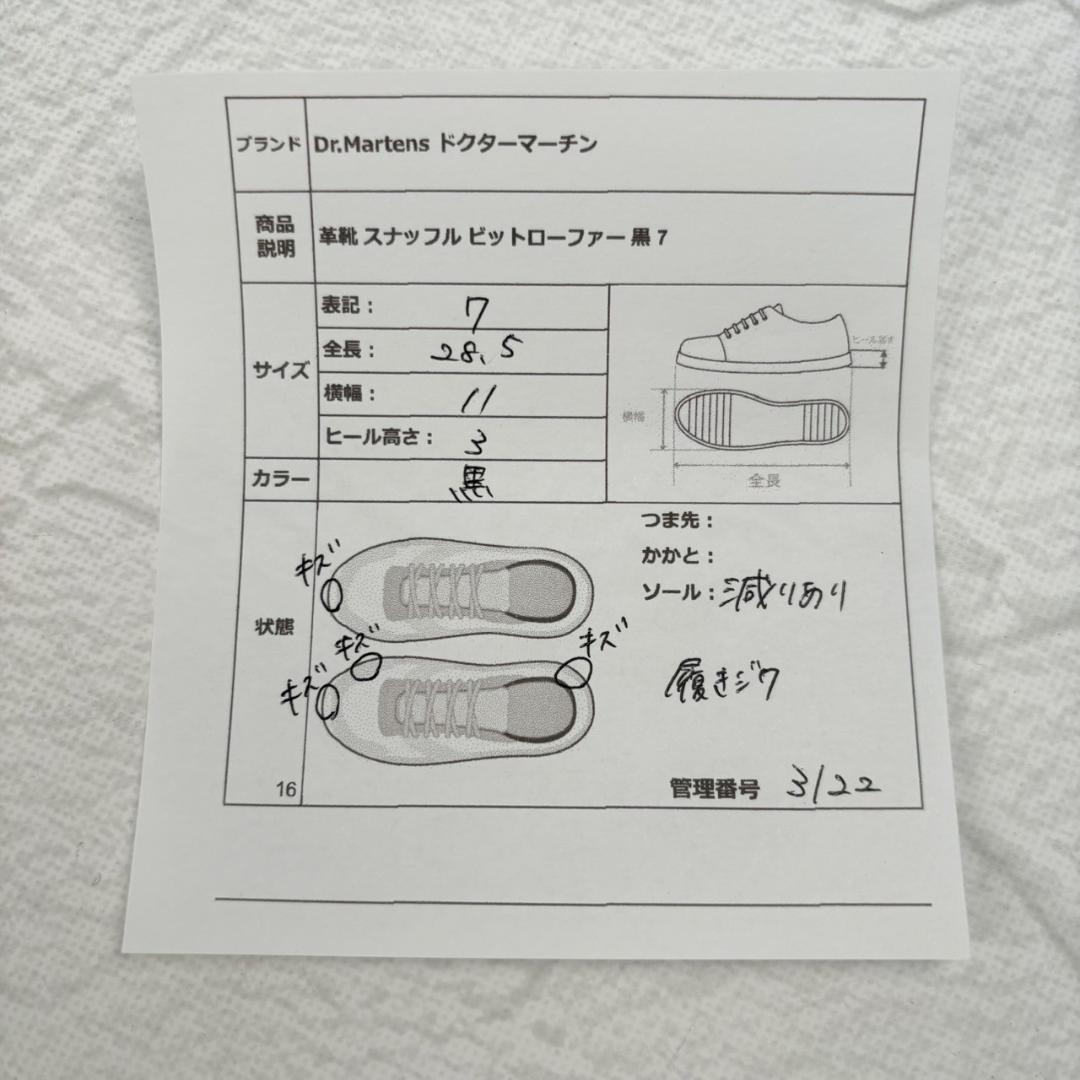 ブランド Dr.Martens ドクターマーチン
商品説明 革靴 スナッフル ビットローファー 黒 7
サイズ
表記： 7
全長： 28.5
横幅： 11
ヒール高さ： 3
ヒール高さ
横幅
全長
カラー 黒
状態
キズ
キズ
キズ
キズ
つま先：
かかと：
ソール：減りあり
履きジワ
16
管理番号 3122